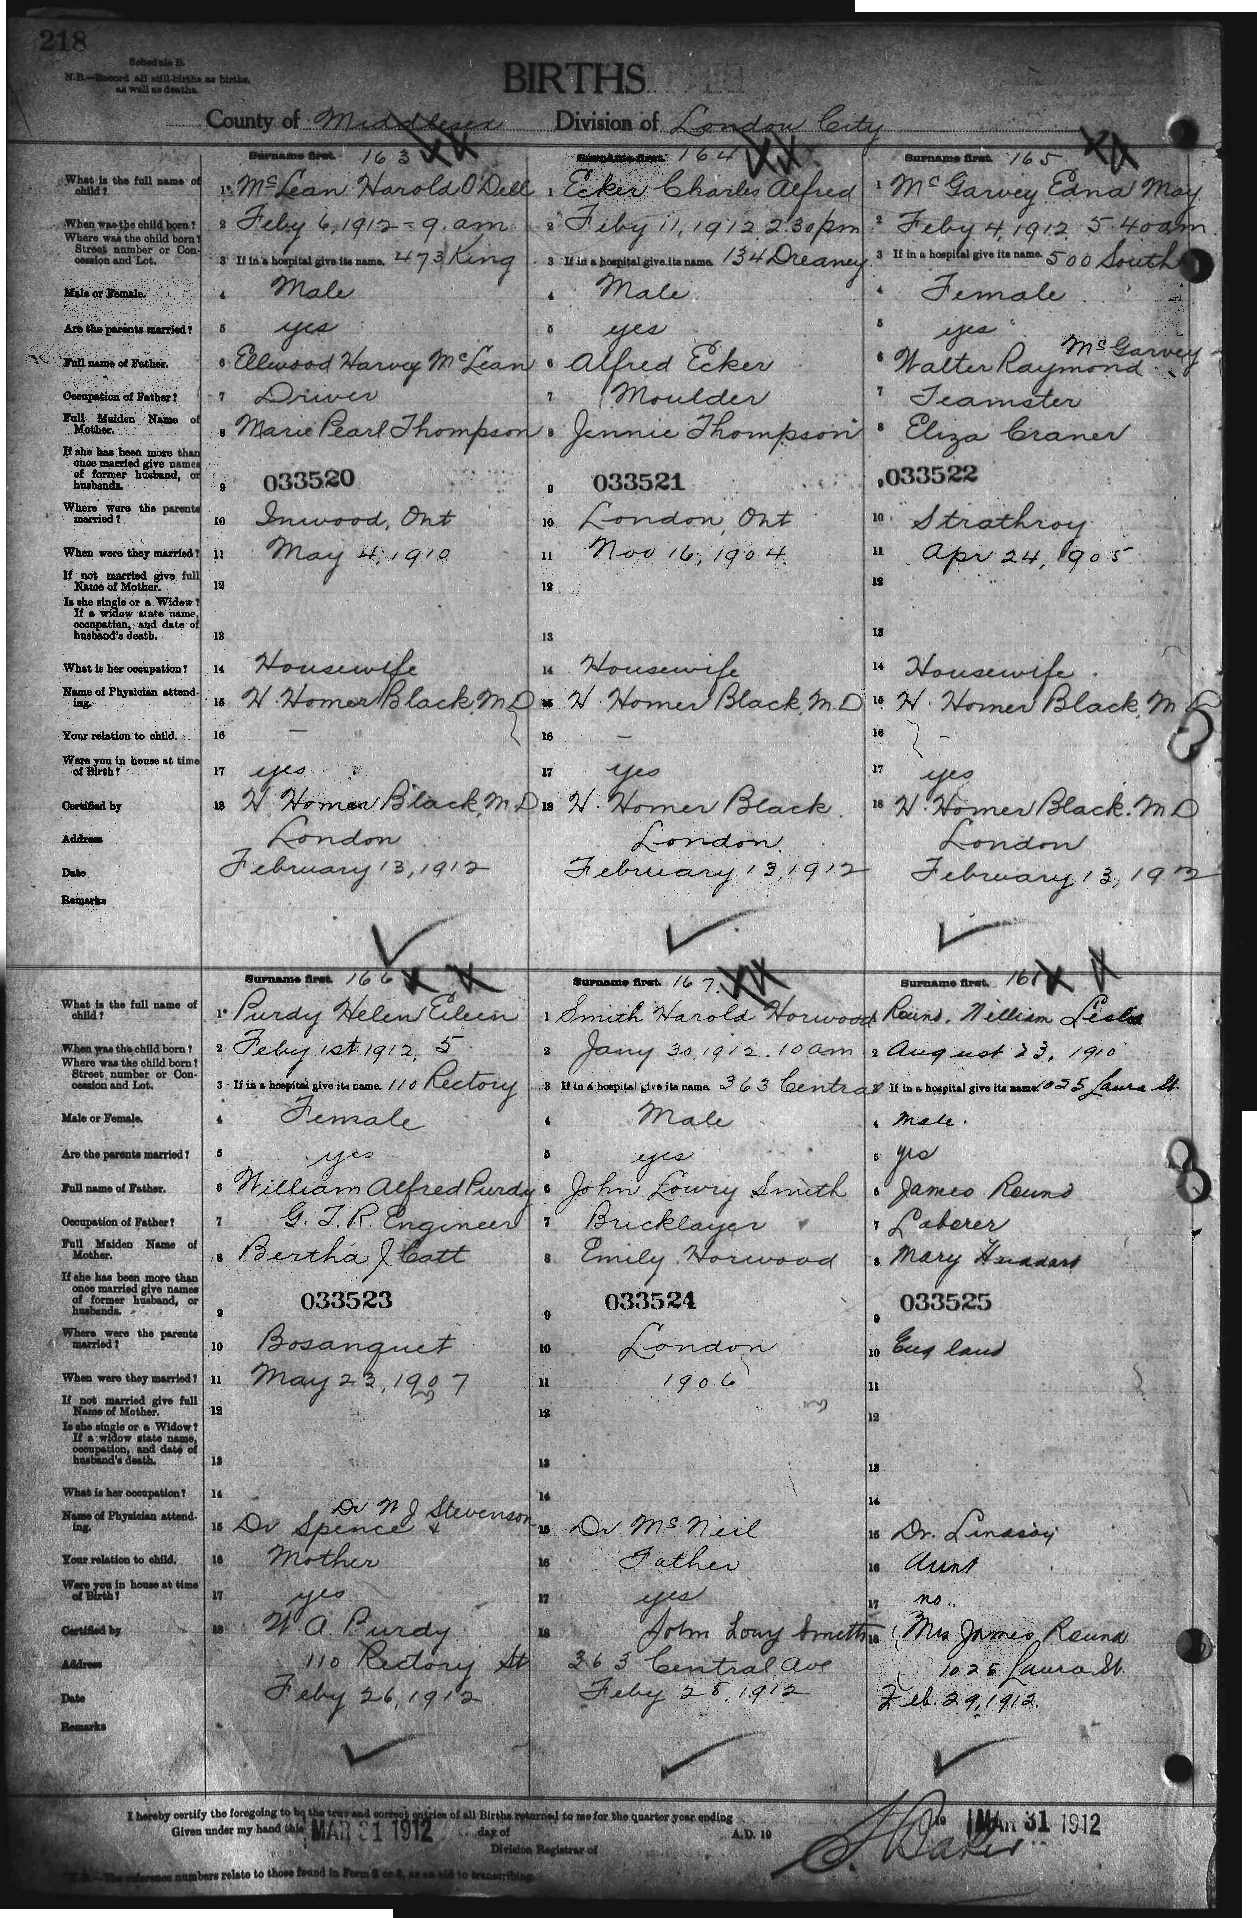 218
Schedule B.
N.B.—Record all still-births as births,
as well as deaths.
BIRTHS
County of Middlesex Division of London City
Surname first. 163 Surname first. 164 Surname first. 165
What is the full name of child? 1 McLean Harold O'Dell 1 Ecker Charles Alfred 1 McGarvey Edna May
When was the child born? 2 Feby 6, 1912 - 9. am 2 Feby 11, 1912 2.30 pm 2 Feby 4, 1912 5.40 am
Where was the child born? Street number or Concession and Lot. 3 If in a hospital give its name. 473 King 3 If in a hospital give its name. 134 Dreaney 3 If in a hospital give its name. 500 South
Male or Female. 4 Male 4 Male 4 Female
Are the parents married? 5 yes 5 yes 5 yes
Full name of Father. 6 Ellwood Harvey McLean 6 Alfred Ecker 6 Walter Raymond McGarvey
Occupation of Father? 7 Driver 7 Moulder 7 Teamster
Full Maiden Name of Mother. 8 Marie Pearl Thompson 8 Jennie Thompson 8 Eliza Craner
If she has been more than once married give names of former husband, or husbands. 9 033520 9 033521 9 033522
Where were the parents married? 10 Inwood, Ont 10 London, Ont 10 Strathroy
When were they married? 11 May 4, 1910 11 Nov 16, 1904 11 Apr 24, 1905
If not married give full Name of Mother. 12 12 12
Is she single or a Widow? If a widow state name, occupation, and date of husband's death. 13 13 13
What is her occupation? 14 Housewife 14 Housewife 14 Housewife
Name of Physician attending. 15 H. Homer Black, M.D 15 H. Homer Black, M.D 15 H. Homer Black, M D
Your relation to child. 16 – 16 – 16 –
Were you in house at time of Birth? 17 yes 17 yes 17 yes
Certified by 18 H. Homer Black, M.D 18 H. Homer Black. 18 H. Homer Black. M D
Address London London London
Date February 13, 1912 February 13, 1912 February 13, 1912
Remarks
Surname first. 166 Surname first. 167 Surname first.
What is the full name of child? 1 Purdy Helen Eileen 1 Smith Harold Horwood Round, William Leslie
When was the child born? 2 Feby 1st 1912, 5 2 Jany 30, 1912. 10 am 2 August 23, 1910
Where was the child born? Street number or Concession and Lot. 3 If in a hospital give its name. 110 Rectory 3 If in a hospital give its name. 363 Central If in a hospital give its name. 1025 Laura St.
Male or Female. 4 Female 4 Male 4 Male.
Are the parents married? 5 yes 5 yes 5 yes
Full name of Father. 6 William Alfred Purdy 6 John Lowry Smith 6 James Round
Occupation of Father? 7 G. T. R. Engineer 7 Bricklayer 7 Laborer
Full Maiden Name of Mother. 8 Bertha J Catt 8 Emily Horwood 8 Mary
If she has been more than once married give names of former husband, or husbands. 9 033523 9 033524 9 033525
Where were the parents married? 10 Bosanquet 10 London 10 England
When were they married? 11 May 23, 1907 11 1906 11
If not married give full Name of Mother. 12 12 12
Is she single or a Widow? If a widow state name, occupation, and date of husband's death. 13 13 13
What is her occupation? 14 14 14
Name of Physician attending. 15 Dr Spence & Dr W J Stevenson 15 Dr McNeil 15 Dr. Lindsay
Your relation to child. 16 Mother 16 Father 16 Aunt
Were you in house at time of Birth? 17 yes 17 yes 17 no.
Certified by 18 W A Purdy 18 John Lowry Smith 18 Mrs James Round
Address 110 Rectory St 363 Central Ave 1025 Laura St.
Date Feby 26, 1912 Feby 28, 1912 Feb. 29, 1912.
Remarks
I hereby certify the foregoing to be the true and correct entries of all Births returned to me for the quarter year ending MAR 31 1912
Given under my hand this MAR 31 1912 day of A.D. 19
Division Registrar of Baker
N.B.—The reference numbers relate to those found in Form 2 or 3, as an aid to transcribing.